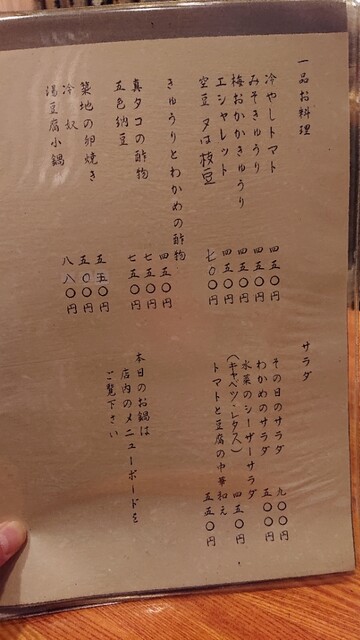 一品お料理
冷やしトマト 四五〇円
みそきゅうり 四五〇円
梅おかかきゅうり 四五〇円
エシャレット 四五〇円
空豆 又は枝豆 七〇〇円
きゅうりとわかめの酢物 四五〇円
真タコの酢物 七五〇円
五色納豆 七五〇円
築地の卵焼き 五五〇円
冷奴 五〇〇円
湯豆腐小鍋 八八〇円
サラダ
その日のサラダ 九〇〇円
わかめのサラダ 五〇〇円
水菜のシーザーサラダ 四五〇円
(キャベツ・レタス)
トマトと豆腐の中華和え 五五〇円
本日のお鍋は
店内のメニューボードを
ご覧下さい